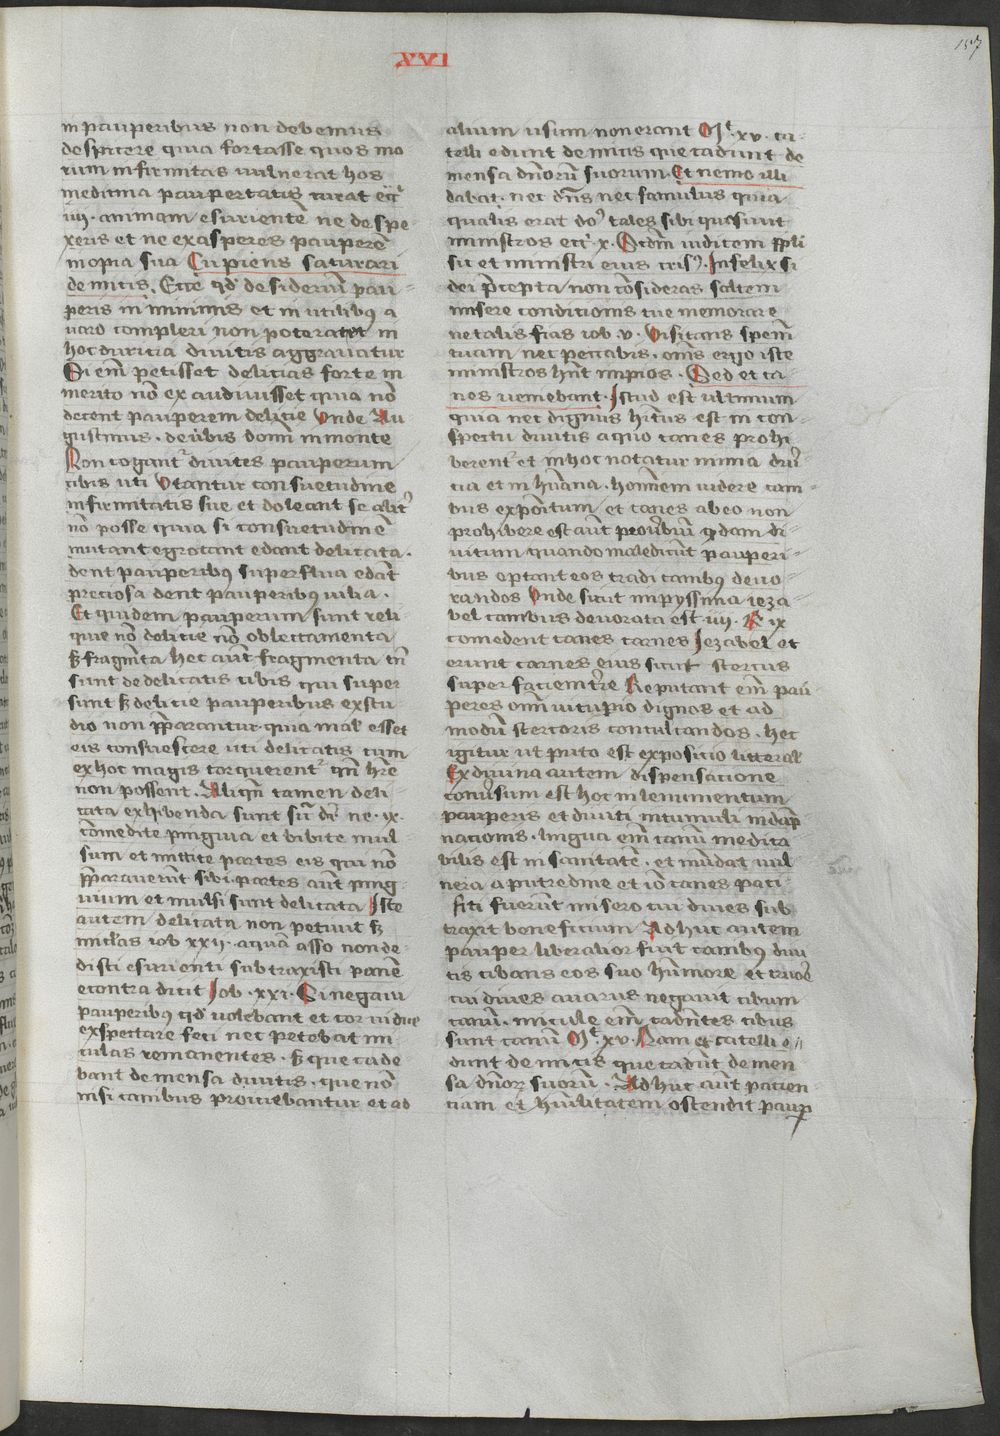 157
XVI
in pauperibus non debemus
despicere quia fortasse quos mo
rum infirmitas vulnerat hos
medicina paupertatis curat eccī
iiij. animam esurientē ne despe
xeris et ne exasperes pauperē
inopia sua Cupiens saturari
de micis. Ecce qd desideriū pau-
peris in minimis et in utilibus a
varo compleri non poterat et in
hoc duricia divitis aggravatur
Si enī petisset delicias forte in
merito nō exaudivisset quia nō
decent pauperem delicie Unde Au
gustinus. de ūbis domī in monte
Non cogant' divites pauperum
cibis uti Utantur consuetudine
infirmitatis sue et doleant se alit'
nō posse quia si consuetudinē
mutant egrotant edant delicata.
dent pauperibꝰ superflua edāt
preciosa dent pauperibꝰ vilia.
Et quidem pauperum sunt reli
quie nō delicie nō oblectamenta
sꝫ fragmēta hec aūt fragmenta tn̄
sunt de delicatis cibis qui super
sunt sꝫ delicie pauperibus ex stu
dio non p̄parantur. quia mal' esset
eis consuescere uti delicatis cum
ex hoc magis torquerent' qn̄ hr̄e
non possent. Aliqn̄ tamen deli
cata exhibenda sunt sīc dr̄ ne. ix.
comedite pinguia et bibite mul
sum et mittite partes eis qui nō
p̄paraverūt sibi. partes aūt ping
uium et mulsi sunt delicata Iste
autem delicata non petivit sꝫ
miclas iob xxij. aquā lasso non de-
disti esurienti subtraxisti panē
econtra dicit Iob. xxxi. Si negavi
pauperibꝰ qd volebant et ocłos vidue
expectare feci nec petebat mi
culas remanentes. sꝫ que cade
bant de mensa divitis. que nō
nisi canibus proiciebantur et ad
alium usum non erant Mt. xv. ca-
telli edunt de micis que cadunt de
mensa dn̄orū suorum. Et nemo illi
dabat. nec dn̄s nec famulus quia
qualis erat dꝰ tales sibi quesivit
ministros ecc̄i x. Scdm iudicem ppli
sic et ministri eius cris'. Infelix si
dei p̄cepta non cōsideras saltem
misere conditionis tue memorare
ne talis fias iob v. Visitans speciē
tuam nec peccabis. om̄s ergo iste
ministros hūit impios. Sed et ca-
nes veniebant. Istud est ultimum
quia nec dignus hitus est in con-
spectu divitis a quo canes prohi
berent' et in hoc notatur nimia duri
cia et inhūana. hominem videre cani-
bus expōitum et canes ab eo non
prohibere est aūt proverbiū qdam di-
vitum quando maledicūt pauperi-
bus optant eos tradi canibꝰ devo-
randos Unde sicut impyssima ieza-
bel canibus devorata est. iiij. R ix
comedent canes carnes Iezabel et
erunt carnes eius sicut stercus
super faciem t̄re Reputant enī pau
peres omī vitupio dignos et ad
modū stercoris conculcandos. hec
igitur ut puto est expositio litteral'
Ex divina autem dispensatione
conversum est hoc in lenimentum
pauperis et diviti in cumulū indāp
nationis. lingua enī canū medica
bilis est in sanitatē. et mūdat vul
nera a putredine et iō canes paci-
fici fuerūt misero cui dives sub
traxit beneficium Adhuc autem
pauper liberalior fuit canibꝰ divi
tis cibans eos suo hūmore et cruore
cui dives avarus negavit cibum
canū. micule enī cadētes cibus
sunt canū Mt. xv. Nam et catelli e
dunt de micis que cadūt de men
sa dn̄orꝫ suorū. Adhuc aūt pacien
ciam et hūilitatem ostendit paup